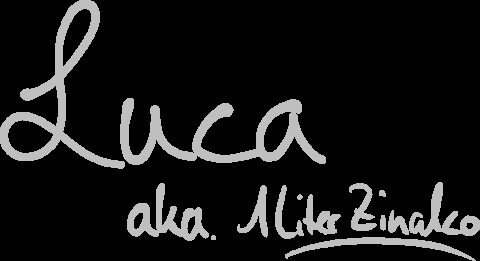 Luca
aka. 1LiterZinalco